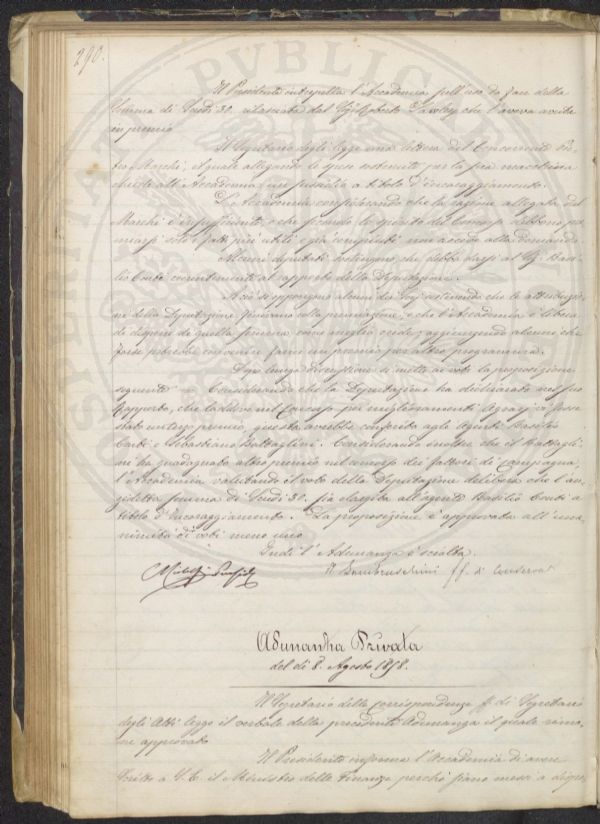 290.
Il Presidente interpella l'Accademia sull'uso da fare della
somma di Scudi 30. rilasciata dal Sig. Lawley che l'aveva avuta
in premio
Il Segretario degli legge una lettera del Concorrente
Marchi, il quale allegando le spese sostenute per la sua macchina
chiede all'Accademia un sussidio a titolo d'incoraggiamento.
L'Accademia considerando che la ragione allegata dal
Marchi è insufficiente, e che secondo lo spirito del Concorso debbono pre
miarsi solo i fatti più utili e già compiuti non accede alla domanda.
Alcuni deputati sostengono che debba darsi al Sig. Basi
lio Conti coerentemente al rapporto della Deputazione.
A ciò si oppongono alcuni dei Socj sostenendo che le attribuzio
ni della Deputazione finivano colla premiazione, e che l'Accademia è libera
di disporre di quella somma come meglio crede; aggiungendo alcuni che
forse potrebbe convenire farne un premio per altro programma.
Dopo lunga discussione si mette ai voti la proposizione
seguente — Considerando che la Deputazione ha dichiarato nel suo
Rapporto, che laddove nel Concorso per miglioramenti agrarj vi fosse
stato un terzo premio, questo avrebbe conferito agli Agenti Basilio
Conti e Sebastiano Battaglini. Considerando inoltre che il Battagli
ni ha guadagnato altro premio nel concorso dei fattori di campagna,
l'Accademia valutando il voto della Deputazione delibera che l'an
zidetta somma di Scudi 30. sia elargita all'agente Basilio Conti a
titolo d'incoraggiamento. La proposizione è approvata all'una
nimità di voti meno uno
Indi l'Adunanza è sciolta.
R Lambruschini ff. di
Adunanza Privata
del dì 8. Agosto 1858.
Il Segretario delle corrispondenze ff. di Segretario
degli Atti legge il verbale della precedente Adunanza il quale rima
ne approvato
Il Presidente informa l'Accademia di avere
scritto a S. E. il Ministro delle Finanze perchè siano messi a dispo